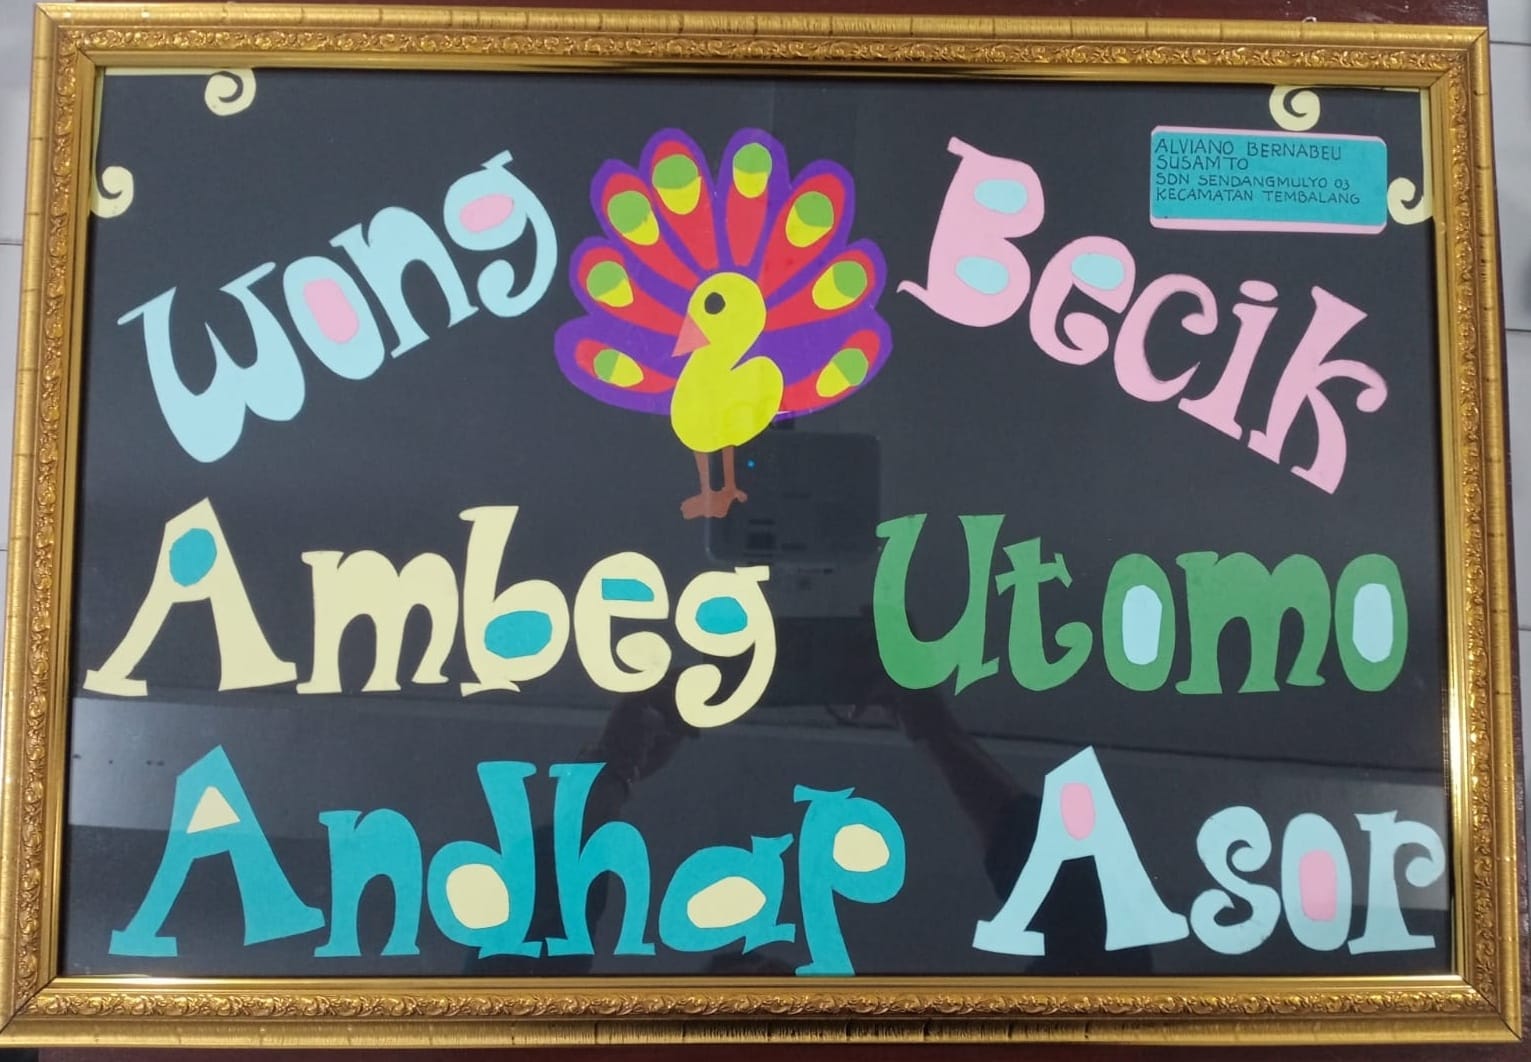 Wong Becik
ALVIANO BERNABEU
SUSAMTO
SDN SENDANGMULYO 03
KECAMATAN TEMBALANG
Ambeg Utomo
Andhap Asor